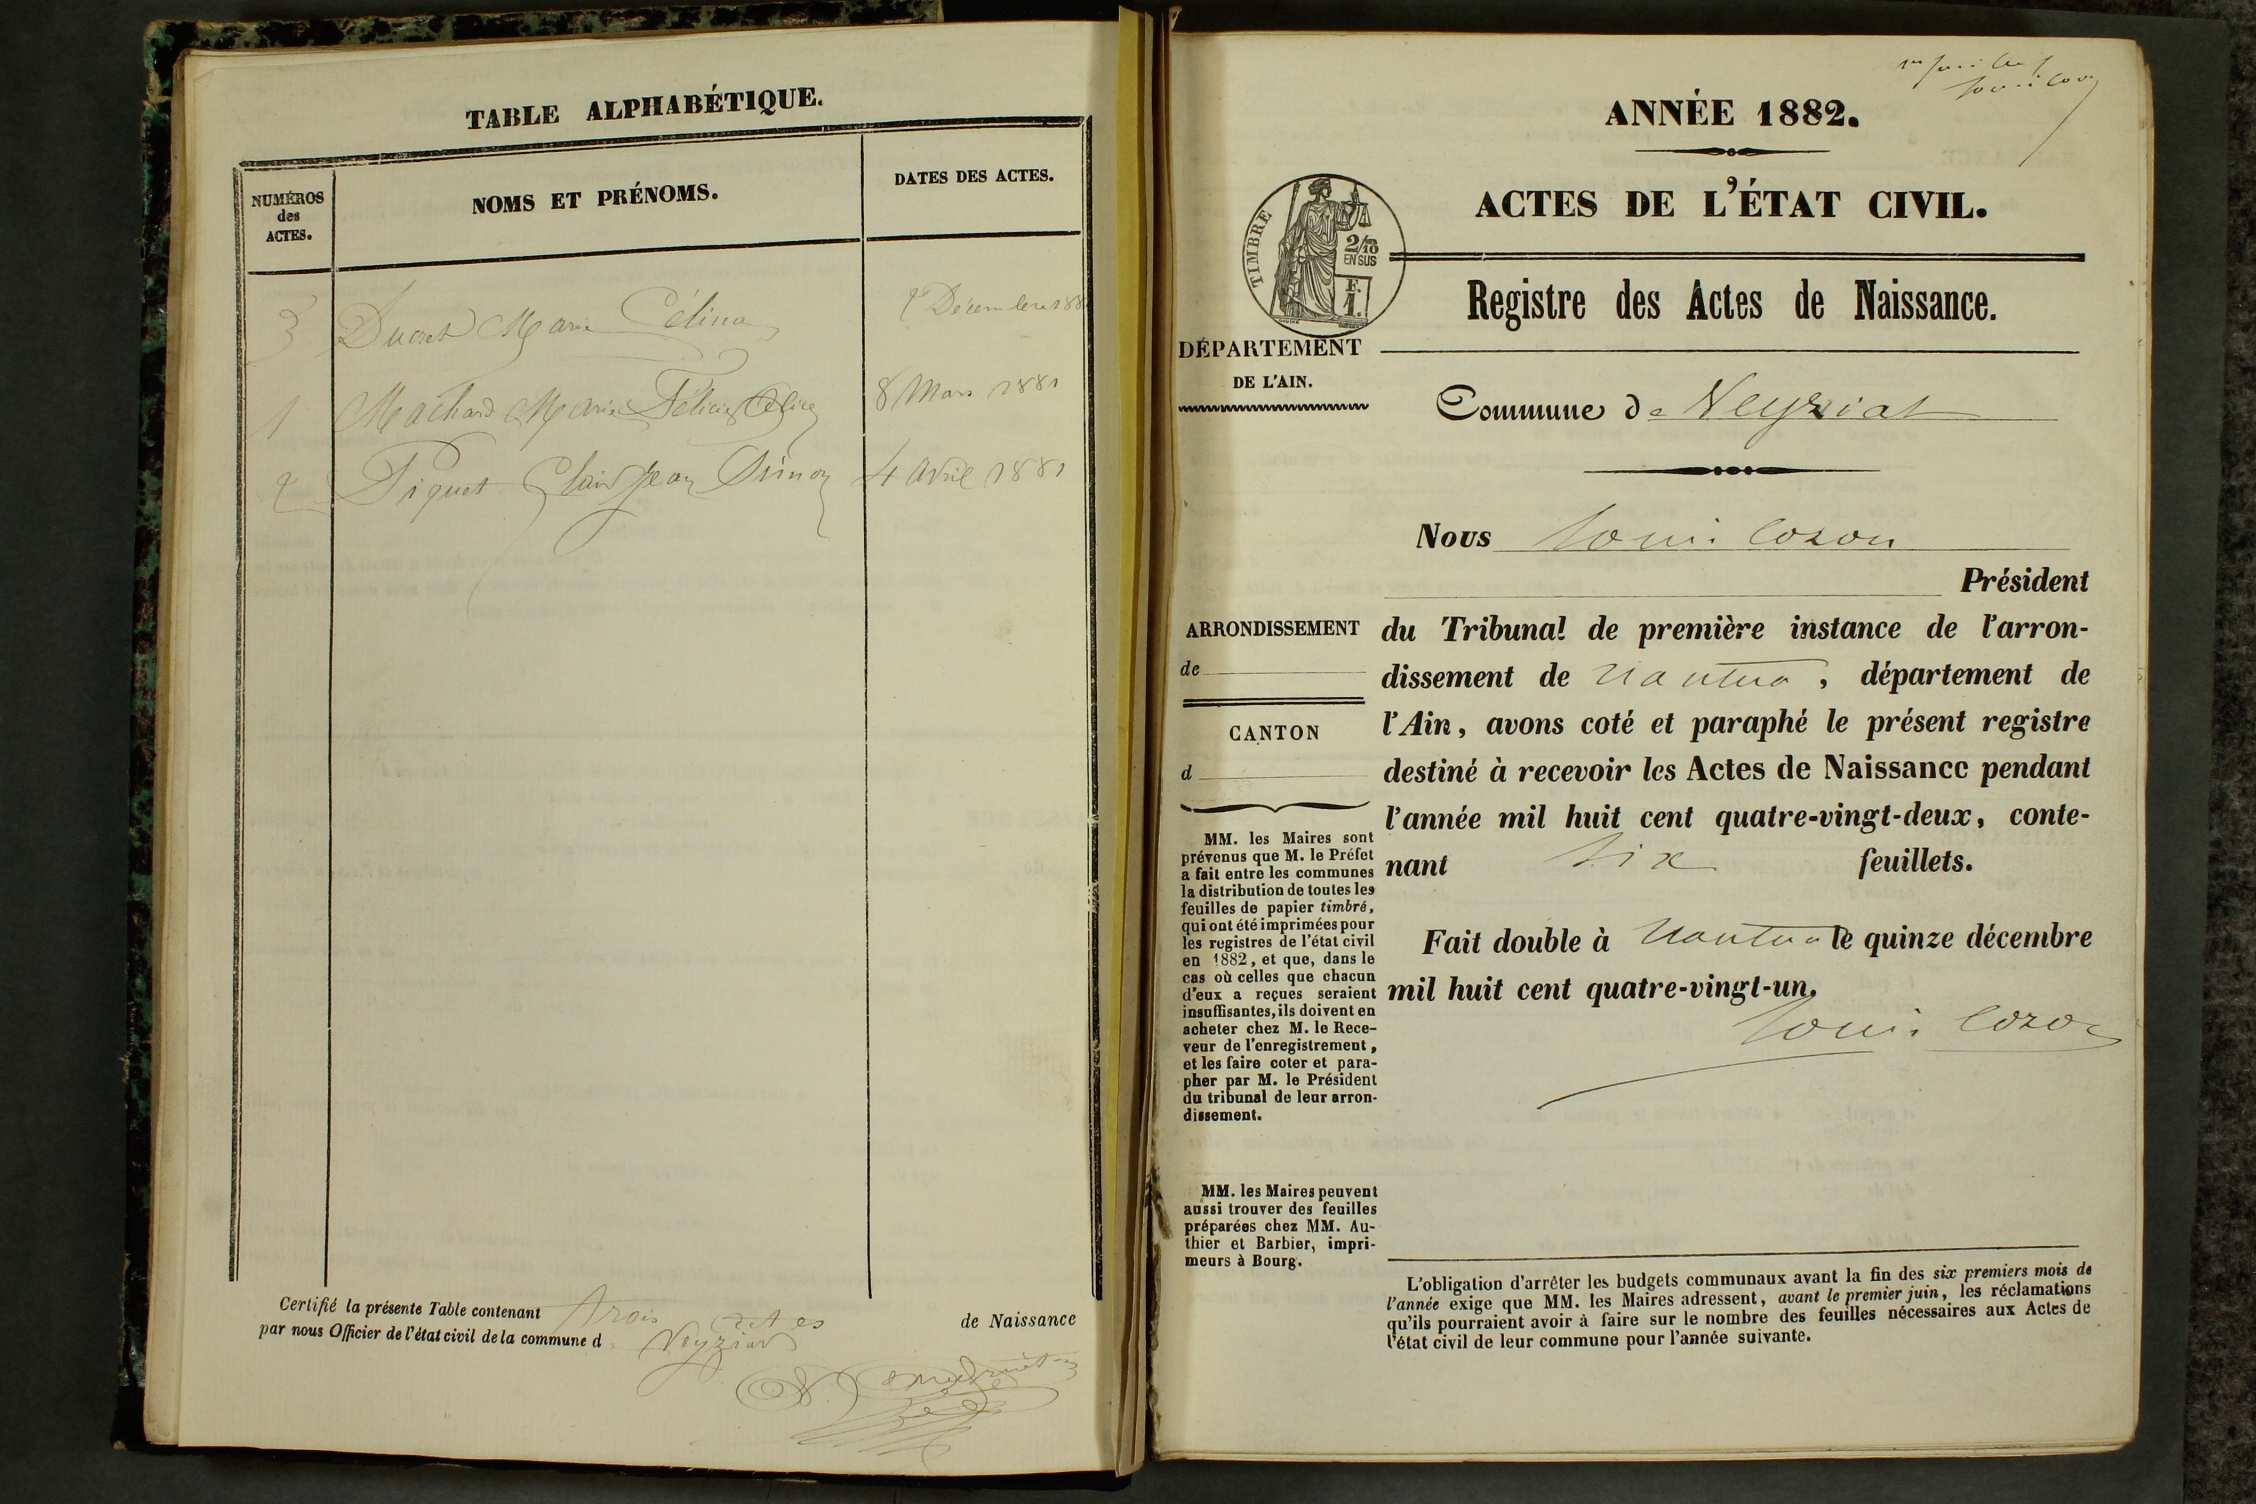 TABLE ALPHABÉTIQUE.
NUMÉROS
des
ACTES.
NOMS ET PRÉNOMS.
DATES DES ACTES.
3 Ducret Marie Célina 2 Décembre 188
1 Machard Marie Félicie 8 Mars 1881
2 Piquet Clair Jean Simon 4 Avril 1881
Certifié la présente Table contenant trois actes de Naissance
par nous Officier de l'état civil de la commune d Neyziat
1er feuillet
Louis Cozon
ANNÉE 1882.
ACTES DE L'ÉTAT CIVIL.
TIMBRE
2/10
EN SUS
F.
1.
Registre des Actes de Naissance.
DÉPARTEMENT
DE L'AIN.
Commune de Neyziat
Nous Louis Cozon
Président
ARRONDISSEMENT
de
CANTON
d
du Tribunal de première instance de l'arron-
dissement de Nantua, département de
l'Ain, avons coté et paraphé le présent registre
destiné à recevoir les Actes de Naissance pendant
l'année mil huit cent quatre-vingt-deux, conte-
nant six feuillets.
Fait double à Nantua le quinze décembre
mil huit cent quatre-vingt-un.
Louis Cozon
MM. les Maires sont
prévenus que M. le Préfet
a fait entre les communes
la distribution de toutes les
feuilles de papier timbré,
qui ont été imprimées pour
les registres de l'état civil
en 1882, et que, dans le
cas où celles que chacun
d'eux a reçues seraient
insuffisantes, ils doivent en
acheter chez M. le Rece-
veur de l'enregistrement,
et les faire coter et para-
pher par M. le Président
du tribunal de leur arron-
dissement.
MM. les Maires peuvent
aussi trouver des feuilles
préparées chez MM. Au-
thier et Barbier, impri-
meurs à Bourg.
L'obligation d'arrêter les budgets communaux avant la fin des six premiers mois de
l'année exige que MM. les Maires adressent, avant le premier juin, les réclamations
qu'ils pourraient avoir à faire sur le nombre des feuilles nécessaires aux Actes de
l'état civil de leur commune pour l'année suivante.